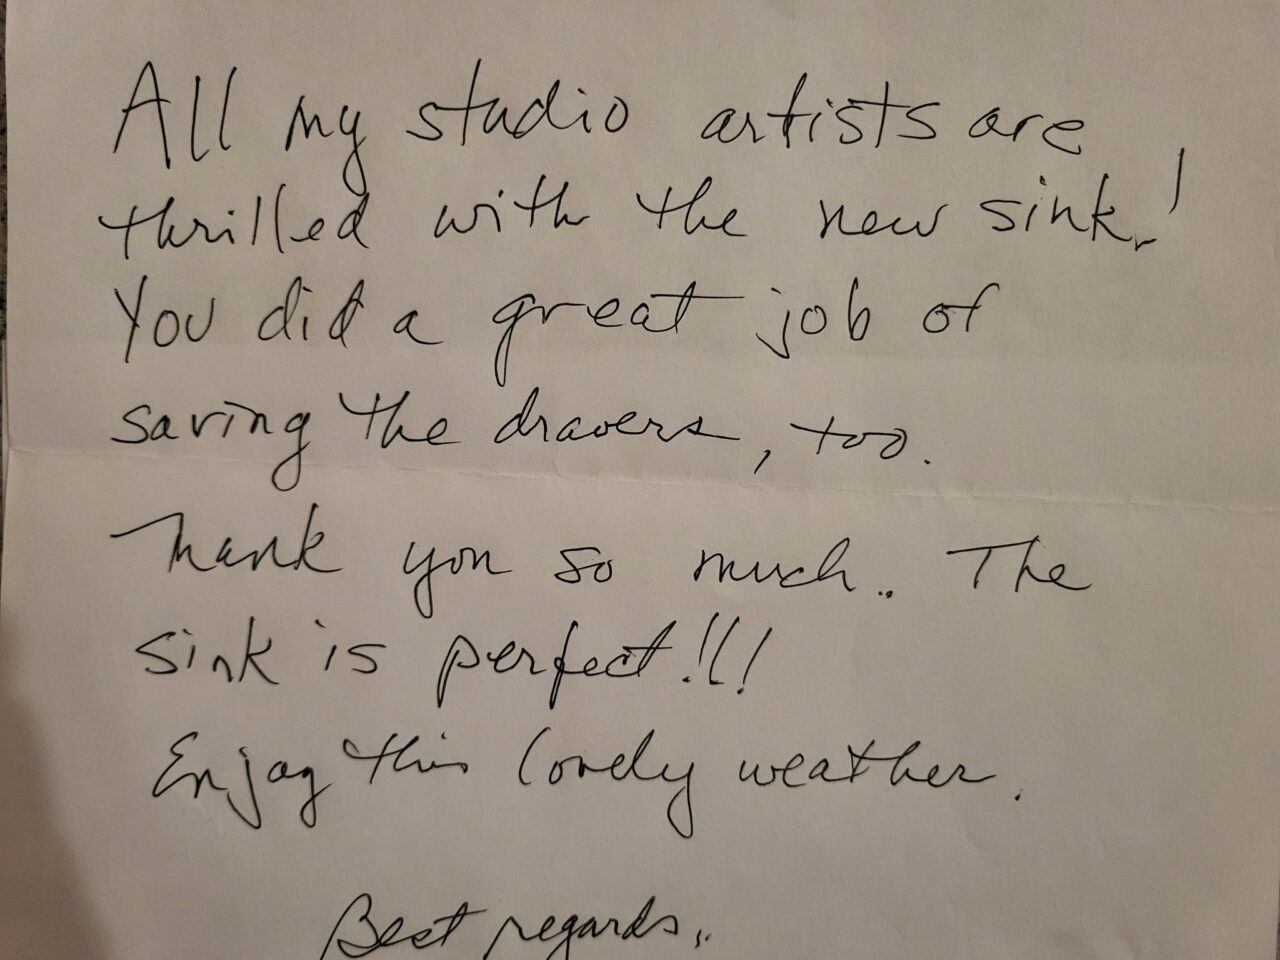 All my studio artists are
thrilled with the new sink!
You did a great job of
saving the drawers, too.
Thank you so much. The
sink is perfect!!!
Enjoy this lovely weather.
Best regards,